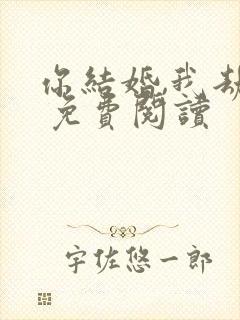 你結婚,我劫
免費閱讀
宇佐悠一郎